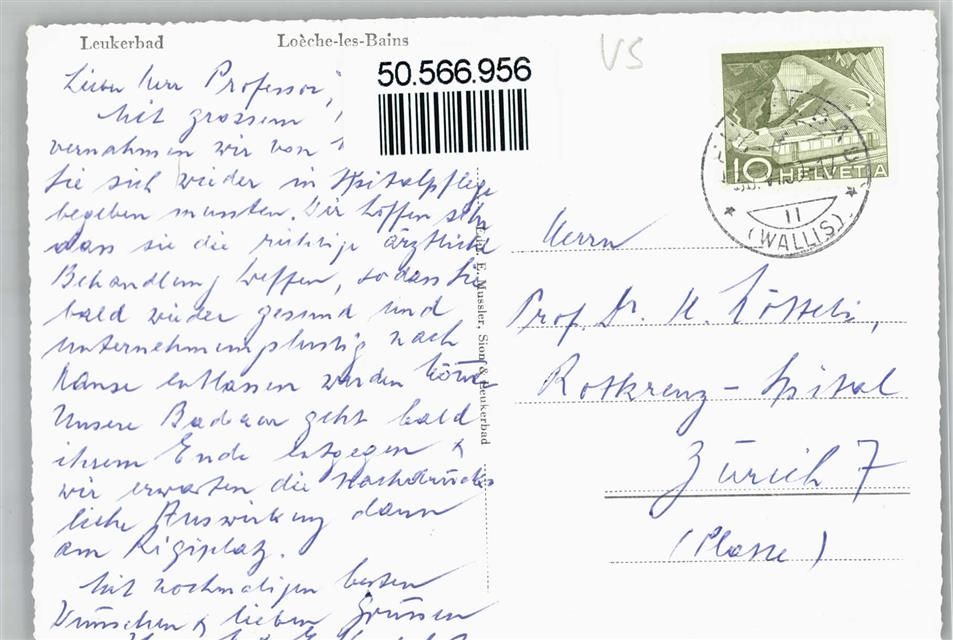 Leukerbad Loèche-les-Bains
50.566.956
VS
10 HELVETIA
11
(WALLIS)
Lieber Herr Professor,
Mit grossem
vernahmen wir von
Sie sich wieder in Spitalpflege
begeben mussten. Wir hoffen sehr
dass sie die richtige ärztliche
Behandlung treffen, sodass Sie
bald wieder gesund und
unternehmungslustig nach
Hause entlassen werden können
Unsere Badekur geht bald
ihrem Ende entgegen &
wir erwarten die nachdrück-
liche Auswirkung dann
am Rigiplatz.
Mit nochmaligen besten
Wünschen & lieben Grüssen
E. Mussler, Sion & Leukerbad
Herrn
Prof. Dr. K.
Rotkreuz-Spital
Zürich 7